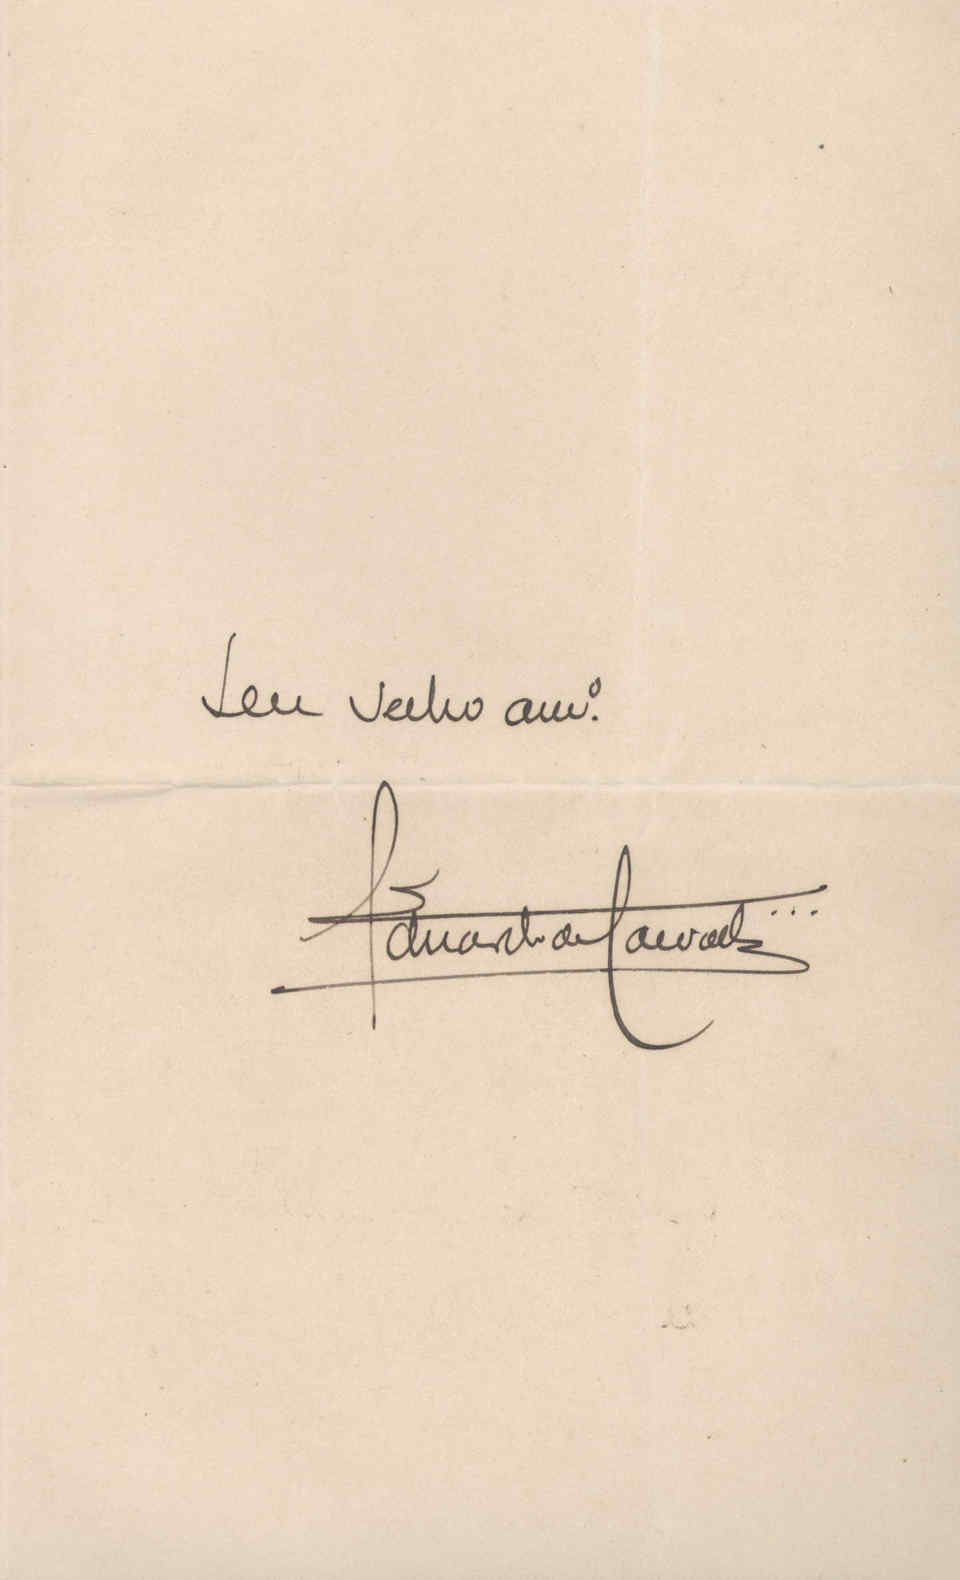 Seu velho amº.
Eduardo de Carvalho...